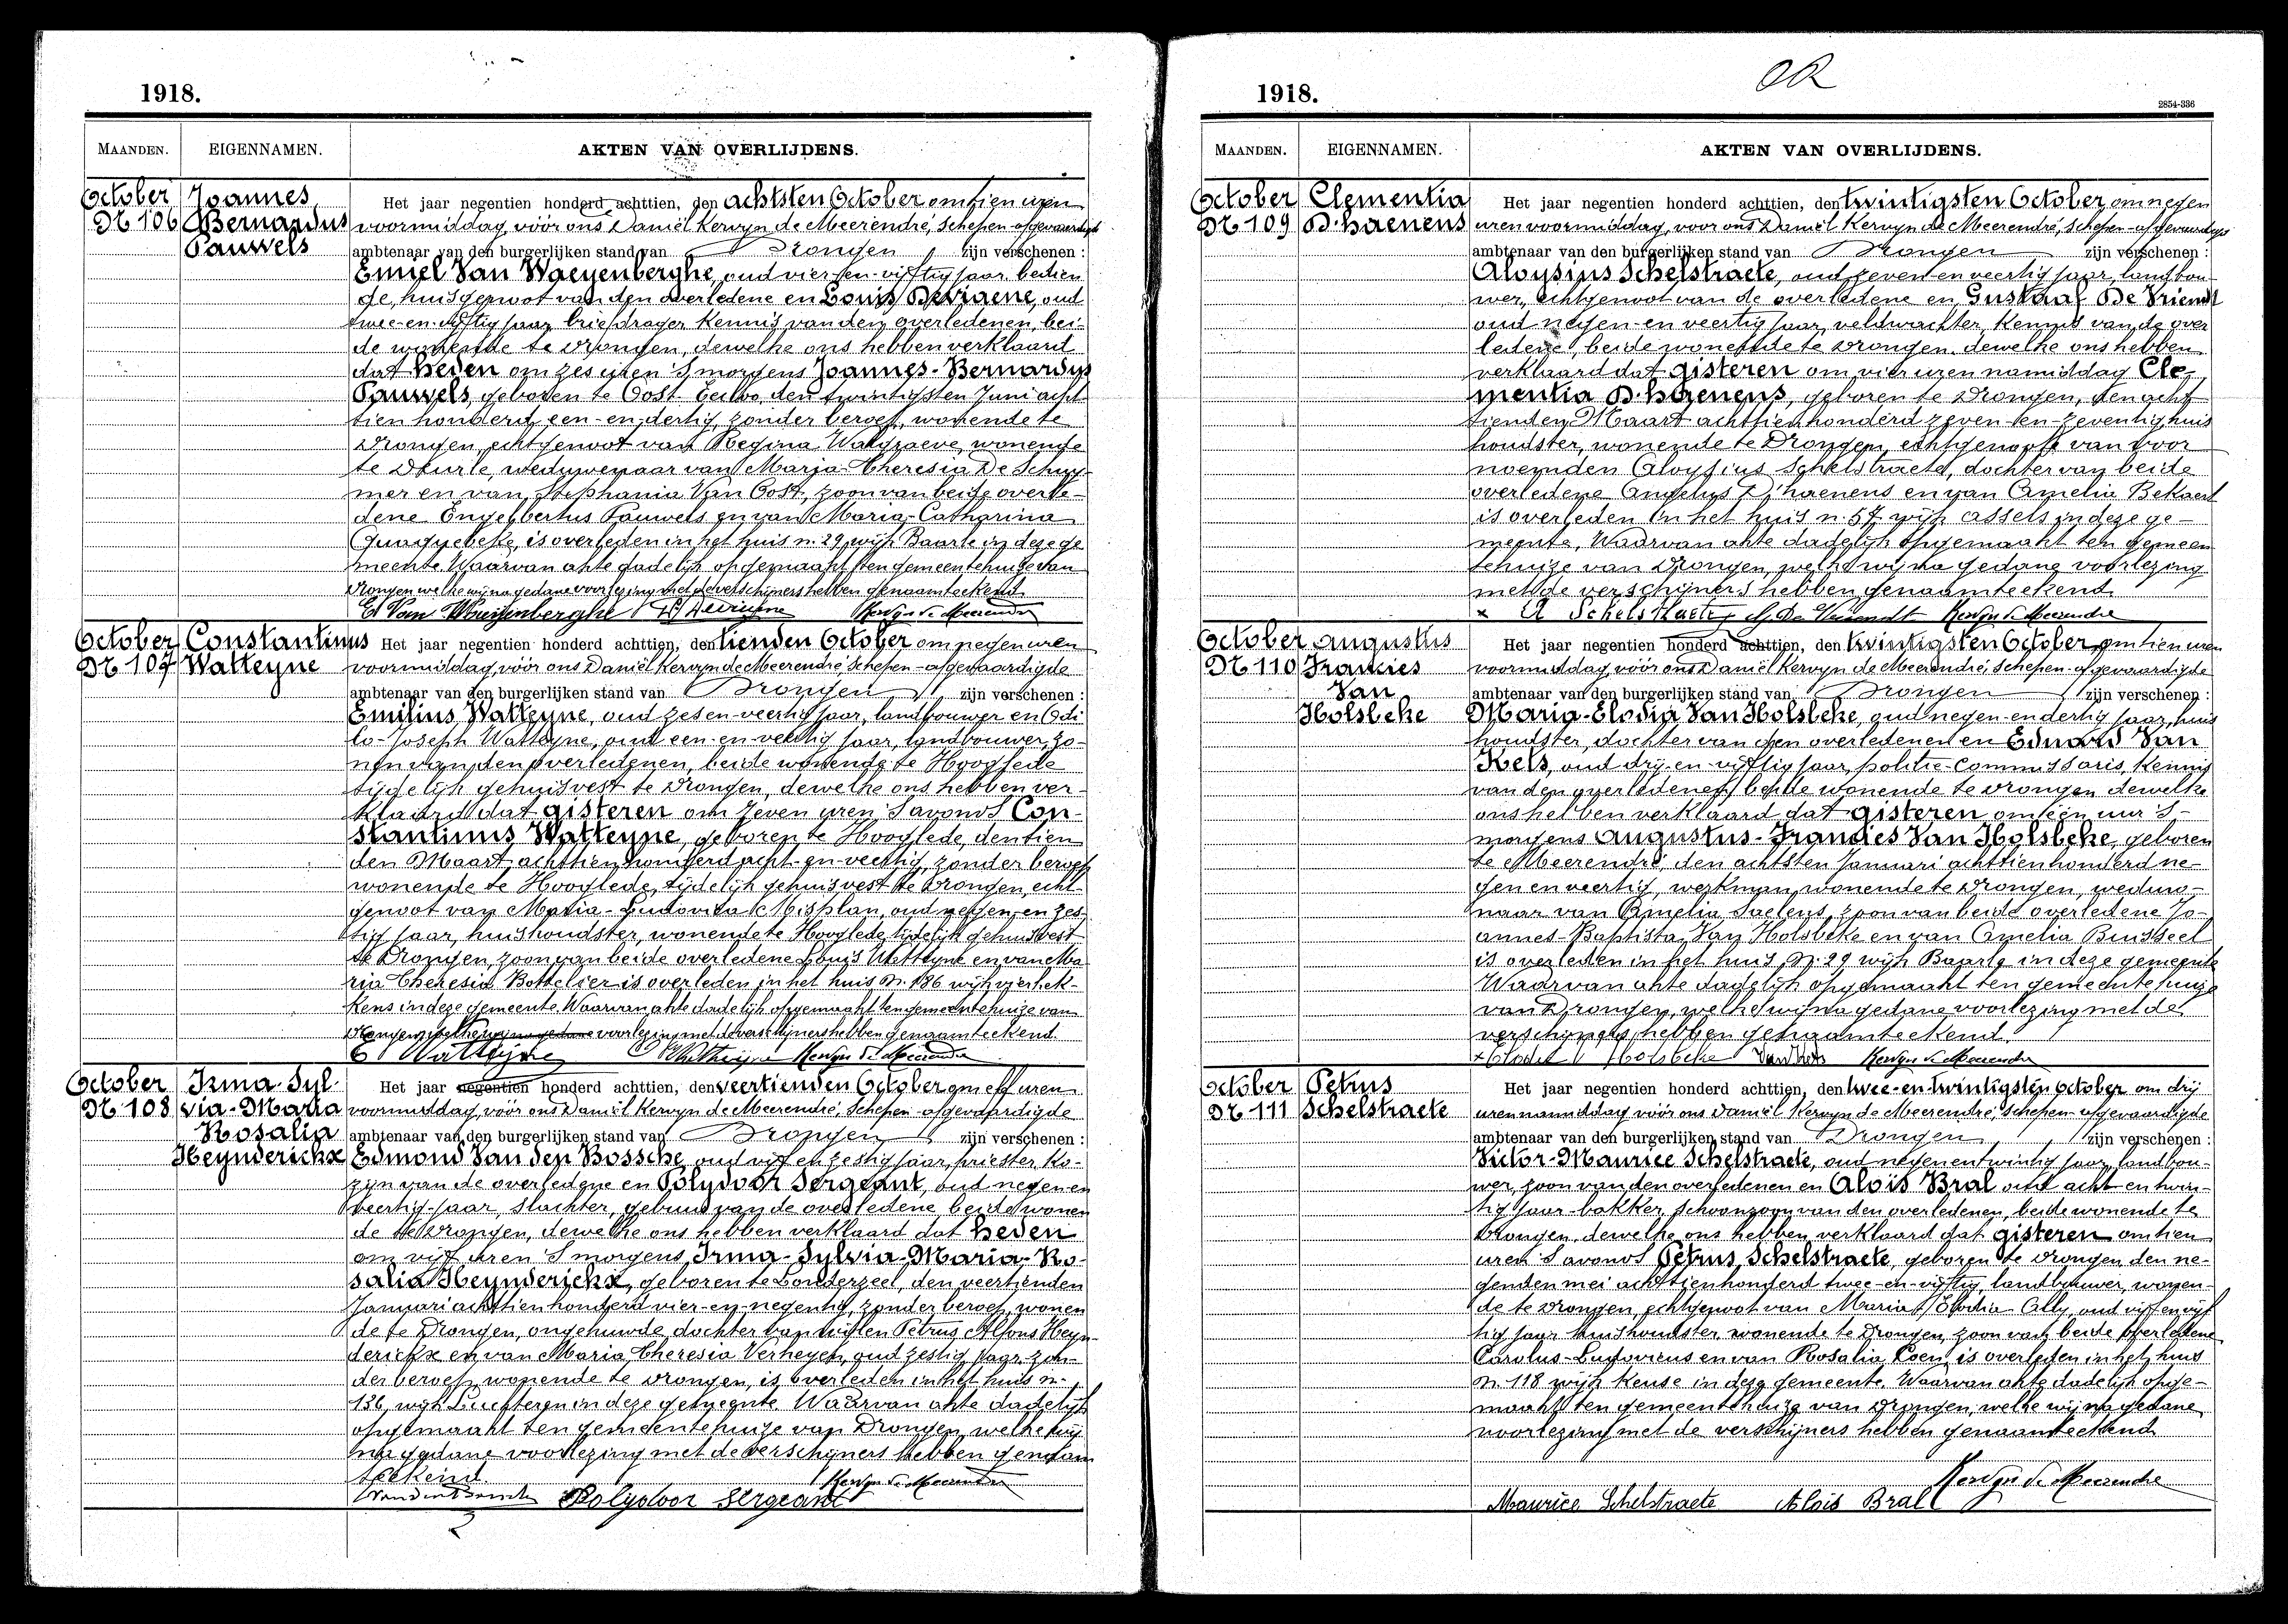 1918.
MAANDEN. EIGENNAMEN. AKTEN VAN OVERLIJDENS.
October Joannes Het jaar negentien honderd achttien, den achtsten October om tien uren
Nr 106 Bernardus voormiddag, vóór ons Daniël Kervyn de Meerendré, schepen-afgevaardigde
Pauwels ambtenaar van den burgerlijken stand van Drongen zijn verschenen :
Emiel Van Waeyenberghe, oud vier-en-vijftig jaar, bedien
de, huisgenoot van den overledene en Louis Devriaene, oud
twee-en-vijftig jaar, briefdrager, kennis van den overledenen, bei-
de wonende te Drongen, dewelke ons hebben verklaard
dat heden om zes uren 's morgens Joannes-Bernardus
Pauwels, geboren te Oost-Eecloo, den twintigsten Juni acht
tien honderd een-en-dertig, zonder beroep, wonende te
Drongen, echtgenoot van Regina Walgraeve, wonende
te Deurle, weduwenaar van Maria-Theresia De Schuy-
mer en van Stephania Van Oost, zoon van beide overle-
dene Engelbertus Pauwels en van Maria-Catharina
Quaquebeke, is overleden in het huis n. 29, wijk Baarle in deze ge
meente. Waarvan akte dadelijk opgemaakt ten gemeentehuize van
Drongen welke wij na gedane voorlezing met de verschijners hebben genaamteekend.
E Van Waeyenberghe Kervyn de Meerendre
October Constantinus Het jaar negentien honderd achttien, den tienden October om negen uren
Nr 107 Watteyne voormiddag, vóór ons Daniël Kervyn de Meerendré, schepen-afgevaardigde
ambtenaar van den burgerlijken stand van Drongen zijn verschenen :
Emilius Watteyne, oud zes en-veertig jaar, landbouwer en Odi
lo-Joseph Watteyne, oud een-en-veertig jaar, landbouwer, zo-
nen van den overledenen, beide wonende te Hooglede
tijdelijk gehuisvest te Drongen, dewelke ons hebben ver-
klaard dat gisteren om zeven uren 's avonds Con-
stantinus Watteyne, geboren te Hooglede, den tien
den Maart achttien honderd acht-en-veertig, zonder beroep
wonende te Hooglede, tijdelijk gehuisvest te Drongen, echt-
genoot van Maria-Ludovica Misplan, oud negen-en zes-
tig jaar, huishoudster, wonende te Hooglede, tijdelijk gehuisvest
te Drongen, zoon van beide overledene Louis Watteyne en van Ma
ria Theresia Bottelier is overleden in het huis N. 186 wijk vierhek-
kens in deze gemeente. Waarvan akte dadelijk opgemaakt ten gemeentehuize van
Drongen welke wij na gedane voorlezing met de verschijners hebben genaamteekend.
E Watteyne O Watteyne Kervyn de Meerendre
October Irma-Syl- Het jaar negentien honderd achttien, den veertienden October om elf uren
Nr 108 via-Maria voormiddag, vóór ons Daniël Kervyn de Meerendré, schepen-afgevaardigde
Rosalia ambtenaar van den burgerlijken stand van Drongen zijn verschenen :
Heynderickx Edmond Van den Bossche, oud vijf en zestig jaar, priester, ko-
zijn van de overledene en Polydoor Sergeant, oud negen-en
veertig-jaar, slachter, gebuur van de overledene, beide wonen
de te Drongen, dewelke ons hebben verklaard dat heden
om vijf uren 's morgens, Irma-Sylvia-Maria-Ro-
salia Heynderickx, geboren te Londerzeel, den veertienden
Januari achttien honderd vier-en-negentig, zonder beroep, wonen
de te Drongen, ongehuwde dochter van wijlen Petrus Alfons Heyn-
derickx en van Maria Theresia Verheyen, oud zestig jaar, zon-
der beroep, wonende te Drongen, is overleden in het huis n.
136, wijk Luchteren in deze gemeente. Waarvan akte dadelijk
opgemaakt ten gemeentehuize van Drongen, welke wij
na gedane voorlezing met de verschijners hebben genaam
teekend.
Kervyn de Meerendre
Polydoor Sergeant
1918.
OR
2854-336
MAANDEN. EIGENNAMEN. AKTEN VAN OVERLIJDENS.
October Clementia Het jaar negentien honderd achttien, den twintigsten October om negen
Nr 109 D'haenens uren voormiddag, voor ons Daniël Kervyn de Meerendré, schepen-afgevaardigde
ambtenaar van den burgerlijken stand van Drongen zijn verschenen :
Aloysius Schelstraete, oud zeven en veertig jaar, landbou-
wer, echtgenoot van de overledene en Gustaaf De Vriendt
oud negen-en veertig jaar, veldwachter, kennis van de over
ledene, beide wonende te Drongen, dewelke ons hebben
verklaard dat gisteren om vier uren namiddag Cle-
mentia D'haenens, geboren te Drongen, den acht
tienden Maart achttien honderd zeven-en-zeventig huis
houdster, wonende te Drongen, echtgenoote van voor
noemden Aloysius Schelstraete, dochter van beide
overledene Angelus D'haenens en van Amelia Bekaert
is overleden in het huis n. 57, wijk Assels in deze ge-
meente. Waarvan akte dadelijk opgemaakt ten gemeen
tehuize van Drongen, welke wij na gedane voorlezing
met de verschijners hebben genaamteekend.
x A Schelstraete G. De Vriendt Kervyn de Meerendre
October Augustus Het jaar negentien honderd achttien, den twintigsten October om tien uren
Nr 110 Francies voormiddag, vóór ons Daniël Kervyn de Meerendré, schepen-afgevaardigde
Van ambtenaar van den burgerlijken stand van Drongen zijn verschenen :
Holsbeke Maria-Elodia Van Holsbeke, oud negen-en dertig jaar, huis
houdster, dochter van den overledenen en Eduard Van
Kets, oud drij-en-vijftig jaar, politie-commissaris, kennis
van den overledenen, beide wonende te Drongen dewelke
ons hebben verklaard dat gisteren om één uur 's-
morgens Augustus-Francies Van Holsbeke, geboren
te Meerendré, den achtsten Januari achttien honderd ne-
gen en veertig, werkman, wonende te Drongen, weduw-
naar van Amelia Saelens, zoon van beide overledene Jo-
annes-Baptista Van Holsbeke en van Amelia Buisseel
is overleden in het huis N. 29 wijk Baarle in deze gemeente
Waarvan akte dadelijk opgemaakt ten gemeente huize
van Drongen, welke wij na gedane voorlezing met de
verschijners hebben genaamteekend.
x Elodie V Holsbeke Van Kets Kervyn de Meerendre
October Petrus Het jaar negentien honderd achttien, den twee-en-twintigsten October om drij
Nr 111 Schelstraete uren namiddag vóór ons Daniël Kervyn de Meerendré, schepen-afgevaardigde
ambtenaar van den burgerlijken stand van Drongen zijn verschenen :
Victor-Maurice Schelstraete, oud negen en twintig jaar, landbou-
wer, zoon van den overledenen en Aloïs Bral oud acht en twin-
tig jaar-bakker, schoonzoon van den overledenen, beide wonende te
Drongen, dewelke ons hebben verklaard dat gisteren om tien
uren 's avonds Petrus Schelstraete, geboren te Drongen den ne-
genden mei achttien honderd twee-en-vijftig, landbouwer, wonen-
de te Drongen, echtgenoot van Maria Elodia Ally, oud vijf en vijf
tig jaar huishoudster, wonende te Drongen, zoon van beide overledene
Carolus-Ludovicus en van Rosalia Coen, is overleden in het huis
N. 118 wijk Keuse in deze gemeente. Waarvan akte dadelijk opge-
maakt ten gemeentehuize van Drongen, welke wij na gedane
voorlezing met de verschijners hebben genaamteekend
Kervyn de Meerendre
Maurice Schelstraete Alois Bral